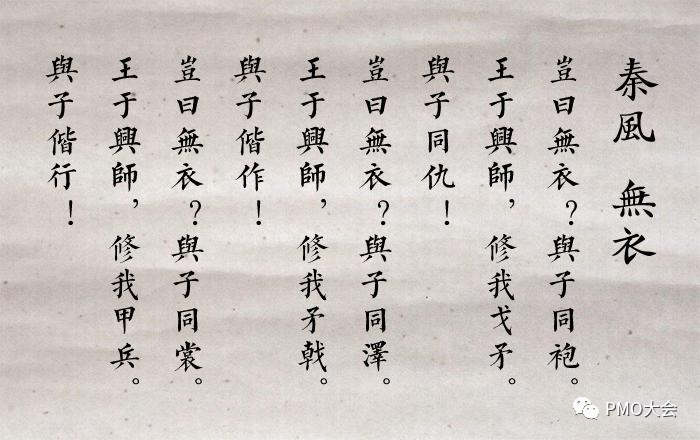 秦風 無衣
豈曰無衣？與子同袍。
王于興師，修我戈矛。
與子同仇！
豈曰無衣？與子同澤。
王于興師，修我矛戟。
與子偕作！
豈曰無衣？與子同裳。
王于興師，修我甲兵。
與子偕行！
PMO大会